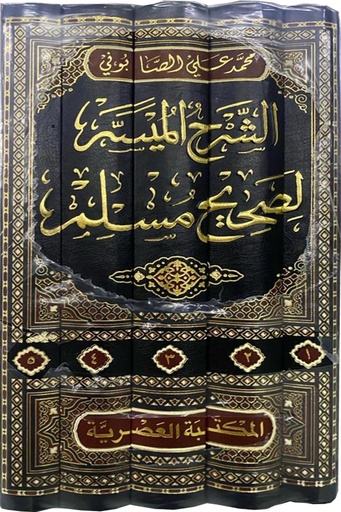 محمد علي الصابوني
الشرح الميسر
لصحيح مسلم
١ ٢ ٣ ٤ ٥
المكتبة العصرية